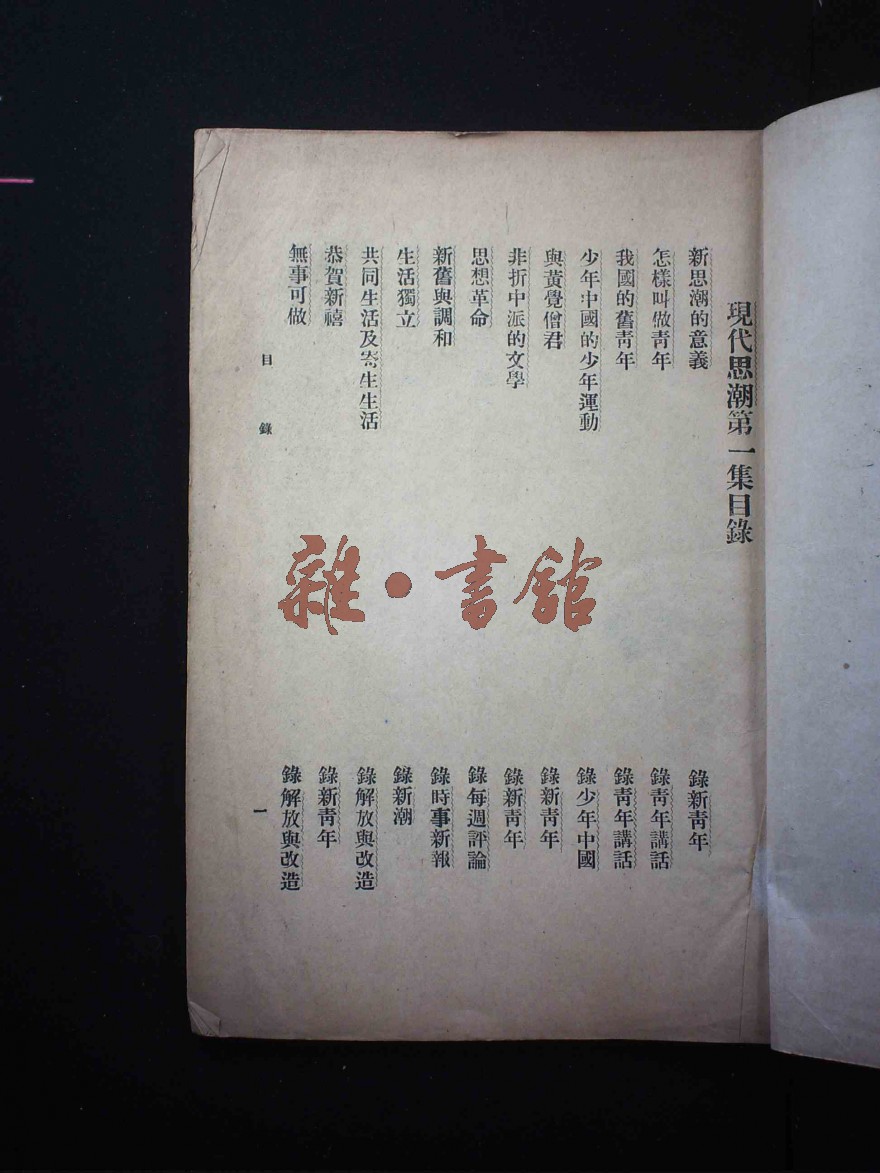 現代思潮第一集目錄
新思潮的意義 錄新靑年
怎樣叫做靑年 錄靑年講話
我國的舊靑年 錄靑年講話
少年中國的少年運動 錄少年中國
與黃覺僧君 錄新靑年
非折中派的文學 錄新靑年
思想革命 錄每週評論
新舊與調和 錄時事新報
生活獨立 錄新潮
共同生活及寄生生活 錄解放與改造
恭賀新禧 錄新靑年
無事可做 錄解放與改造
目錄 一
雜·書館